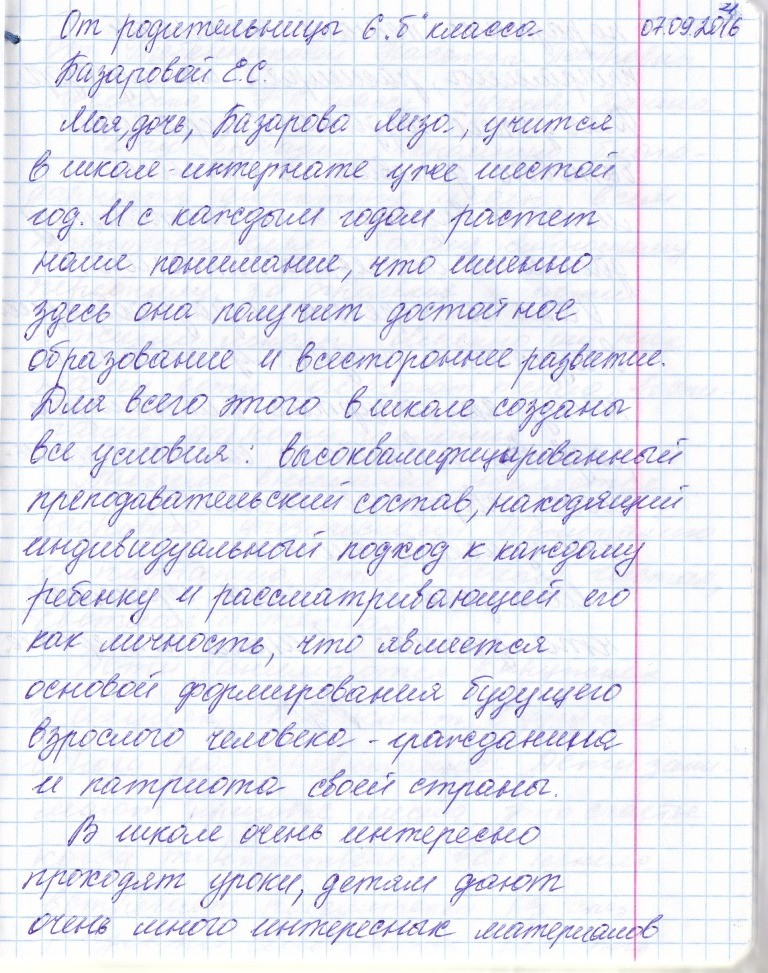 От родительницы 6 „б" класса 07.09.2016
21
Базаровой Е.С.
Моя, дочь, Базарова Лиза, учится
в школе-интернате уже шестой
год. И с каждым годом растет
наше понимание, что именно
здесь она получит достойное
образование и всестороннее развитие.
Для всего этого в школе созданы
все условия: высококвалифицированный
преподавательский состав, находящий
индивидуальный подход к каждому
ребенку и рассматривающей его
как личность, что является
основой формирования будущего
взрослого человека - гражданина
и патриота своей страны.
В школе очень интересно
проходят уроки, детям дают
очень много интересных материалов